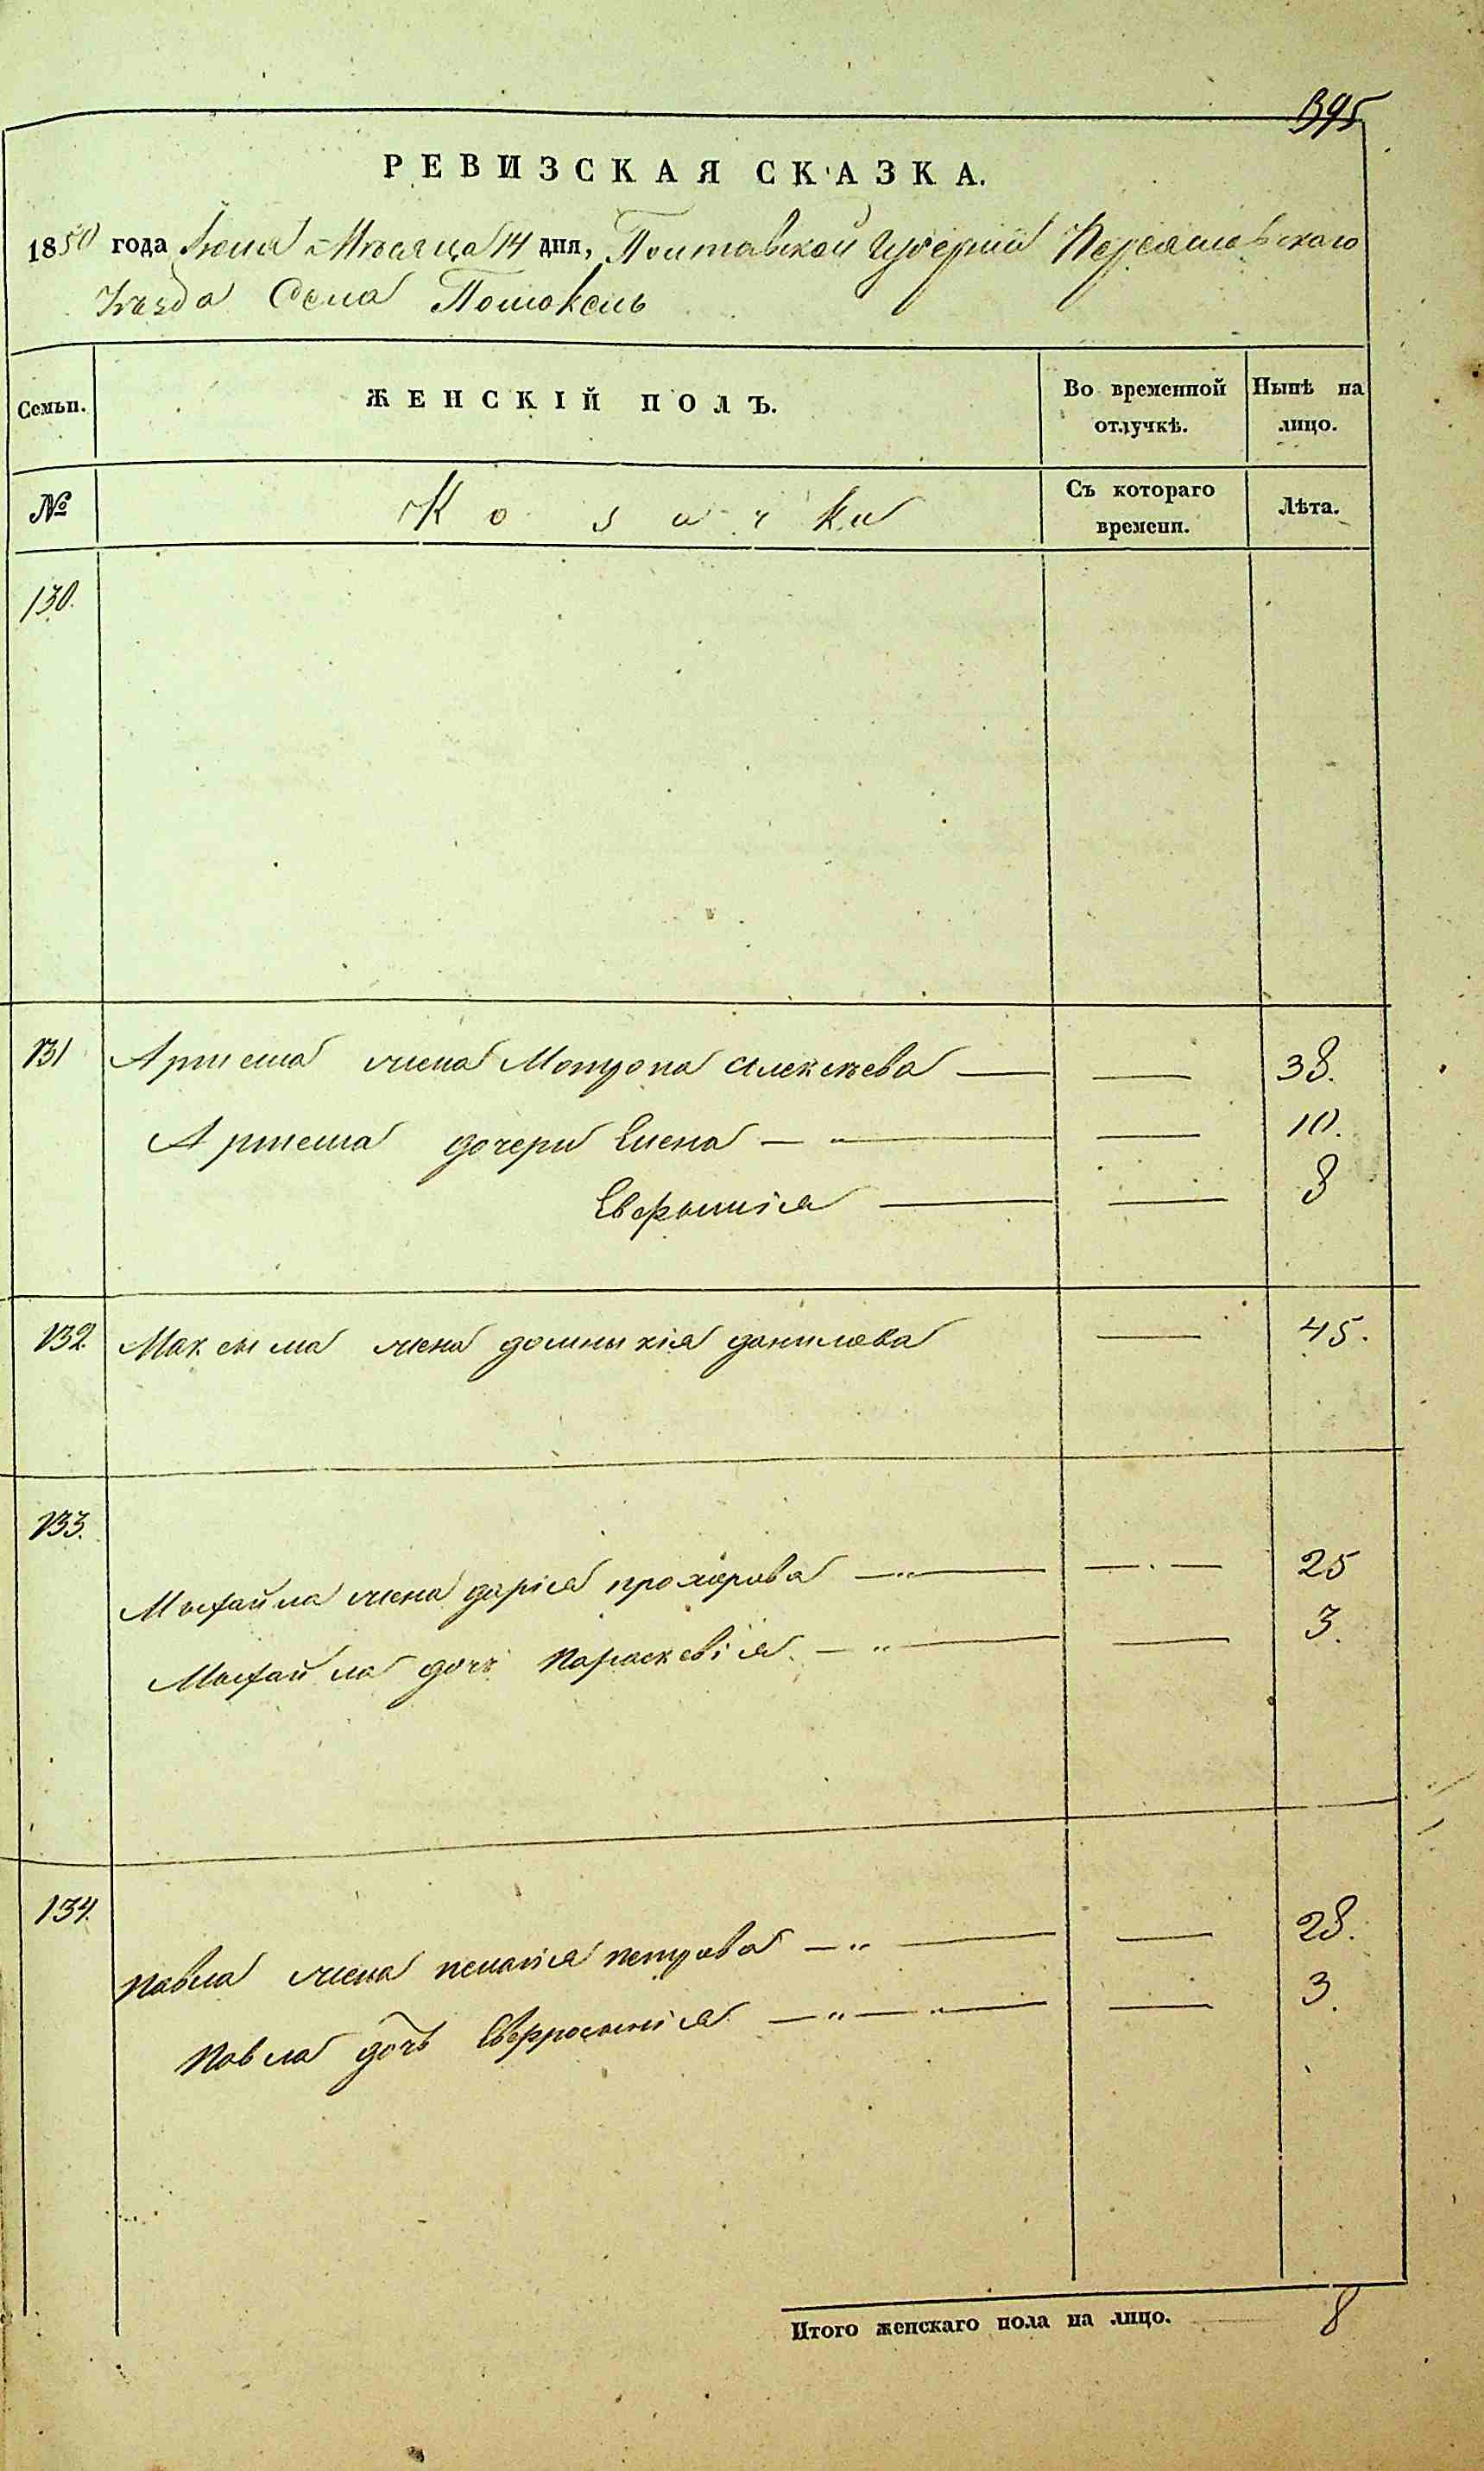 395
РЕВИЗСКАЯ СКАЗКА.
1850 года Июня Месяца 14 дня, Полтавской Губернии Переяславского
Уезда Села Помоклъ
Семьи. ЖЕНСКІЙ ПОЛЪ. Во временной отлучкѣ. Нынѣ на лицо.
№ Козачки Съ котораго времени. Лѣта.
130.
131 Артема жена Мотрона Алексѣева 38.
Артема дочери Елена 10.
Евфросинія 8
132. Максыма жена домныкія данилова 45.
133.
Мыхайла жена дарія прохорова 25
Мыхайла дочь Параскевія 3.
134.
Павла жена пелагія петрова 28.
Павла дочь Евфросинія 3.
Итого женскаго пола на лицо. 8